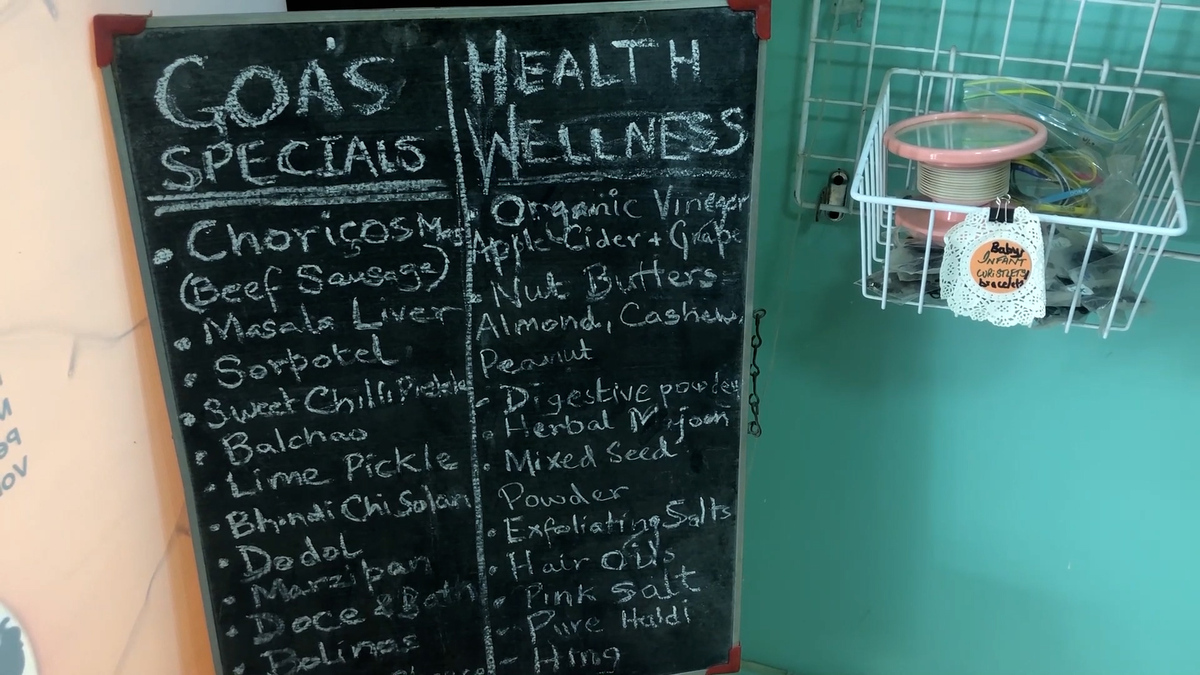 GOA'S
SPECIALS
• Choriços
(Beef Sausage)
• Masala Liver
• Sorpotel
• Sweet Chilli Pickle
• Balchao
- Lime Pickle
• Bhindi Chi Solan
• Dodol
• Marzipan
• Doce & Bath
• Bolinas
HEALTH
WELLNESS
• Organic Vinegar
Apple Cider + Grape
- Nut Butters
Almond, Cashew,
Peanut
- Digestive powder
• Herbal Majoon
• Mixed Seed
Powder
• Exfoliating Salts
• Hair Oils
• Pink Salt
- Pure Haldi
- Hing
Baby
INFANT
WRISTLETS/
bracelets